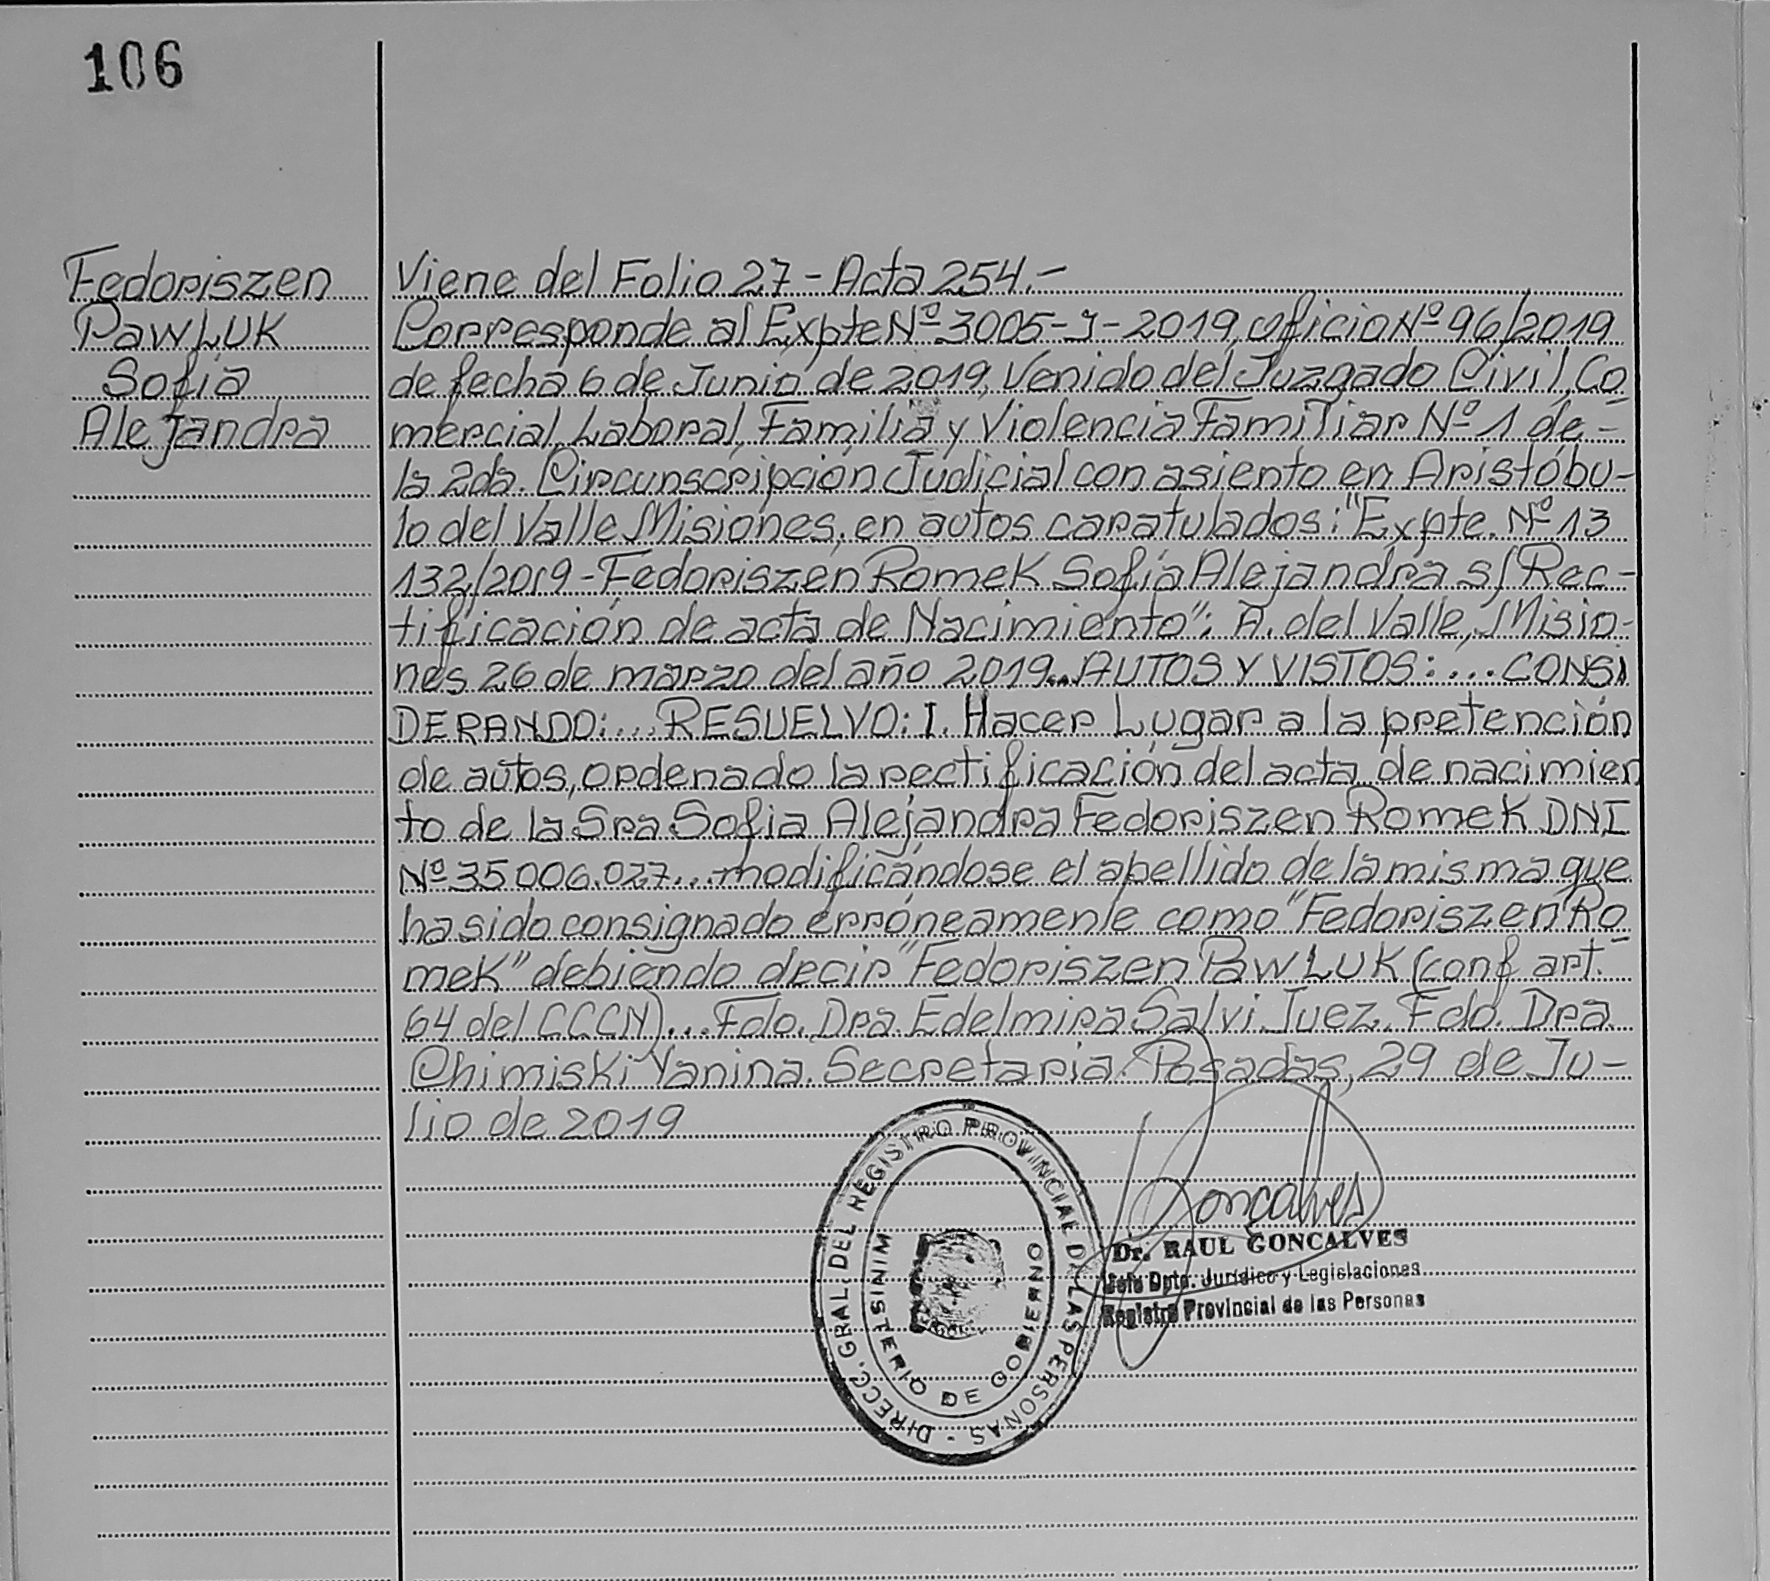 106
Fedoriszen
PawLUK
Sofia
Alejandra
Viene del Folio 27 - Acta 254.-
Corresponde al Expte Nº 3005-J-2019, oficio Nº 96/2019
de fecha 6 de Junio de 2019, Venido del Juzgado Civil, Co
mercial, Laboral, Familia y Violencia Familiar Nº 1 de-
la 2da. Circunscripción Judicial con asiento en Aristóbu-
lo del Valle Misiones, en autos caratulados: "Expte. Nº 13
132/2019 - Fedoriszen Romek Sofía Alejandra s/ Rec-
tificación de acta de Nacimiento"; A. del Valle, Misio-
nes 26 de marzo del año 2019... AUTOS Y VISTOS:... CONSI
DERANDO:... RESUELVO: I. Hacer Lugar a la pretención
de autos, ordenado la rectificación del acta de nacimien
to de la Sra Sofia Alejandra Fedoriszen Romek DNI
Nº 35006.027... modificándose el apellido de la misma que
ha sido consignado erróneamente como "Fedoriszen Ro
mek" debiendo decir "Fedoriszen PawLUK (conf art.-
64 del CCCN)... Fdo. Dra. Edelmira Salvi. Juez. Fdo. Dra.
Chimiski Yanina. Secretaria. Posadas, 29 de Ju-
lio de 2019
DIRECC. GRAL. DEL REGISTRO PROVINCIAL DE LAS PERSONAS -
MINISTERIO DE GOBIERNO
Goncalves
Dr. RAUL GONCALVES
Jefe Dpto. Jurídico y Legislaciones
Registro Provincial de las Personas